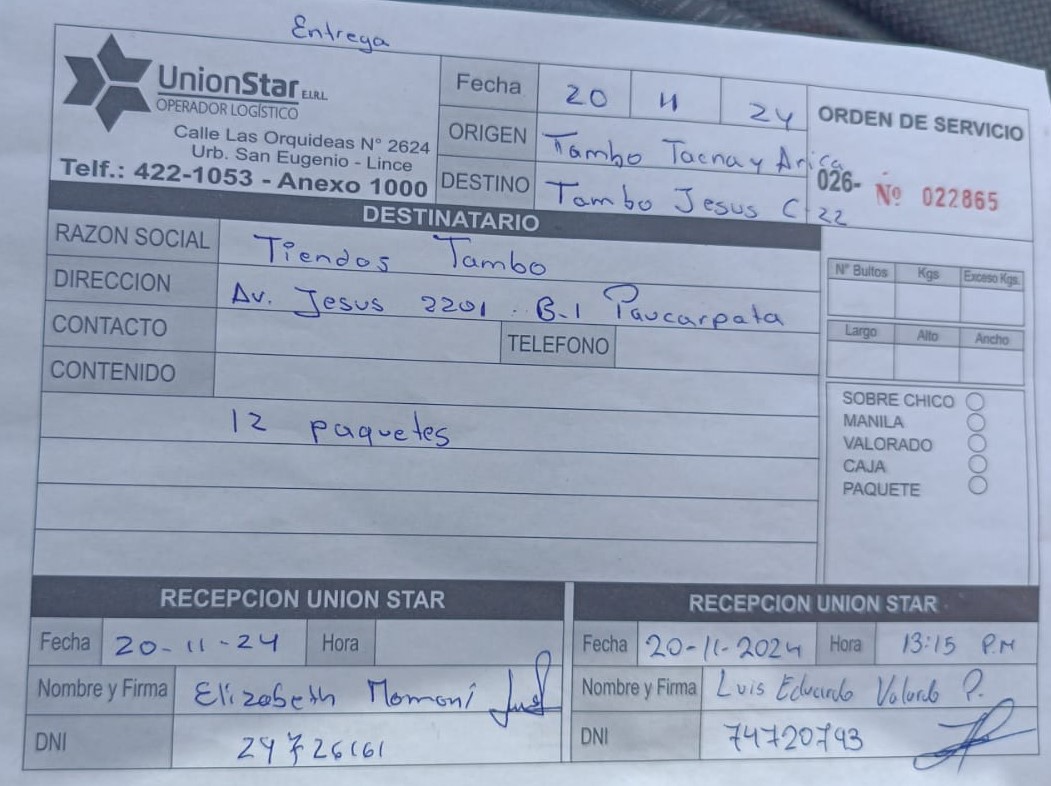 Entrega
UnionStar E.I.R.L.
OPERADOR LOGÍSTICO
Calle Las Orquideas N° 2624
Urb. San Eugenio - Lince
Telf.: 422-1053 - Anexo 1000
Fecha 20 11 24
ORIGEN Tambo Tacna y Arica
DESTINO Tambo Jesus C-22
ORDEN DE SERVICIO
026- Nº 022865
DESTINATARIO
RAZON SOCIAL Tiendos Tambo
DIRECCION Av. Jesus 2201 B-1 Paucarpata
CONTACTO TELEFONO
CONTENIDO
12 paquetes
N° Bultos Kgs Exceso Kgs.
Largo Alto Ancho
SOBRE CHICO
MANILA
VALORADO
CAJA
PAQUETE
RECEPCION UNION STAR
Fecha 20-11-24 Hora
Nombre y Firma Elizabeth Mamani
DNI
RECEPCION UNION STAR
Fecha 20-11-2024 Hora 13:15 P.M
Nombre y Firma Luis Eduardo P.
DNI 74720793